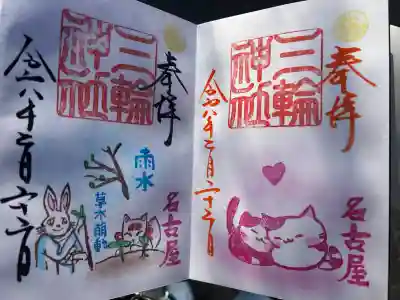 奉拝
三輪
神社
令和八年二月二十二日
雨水
草木萌動
名古屋
奉拝
三輪
神社
令和八年二月二十二日
名古屋